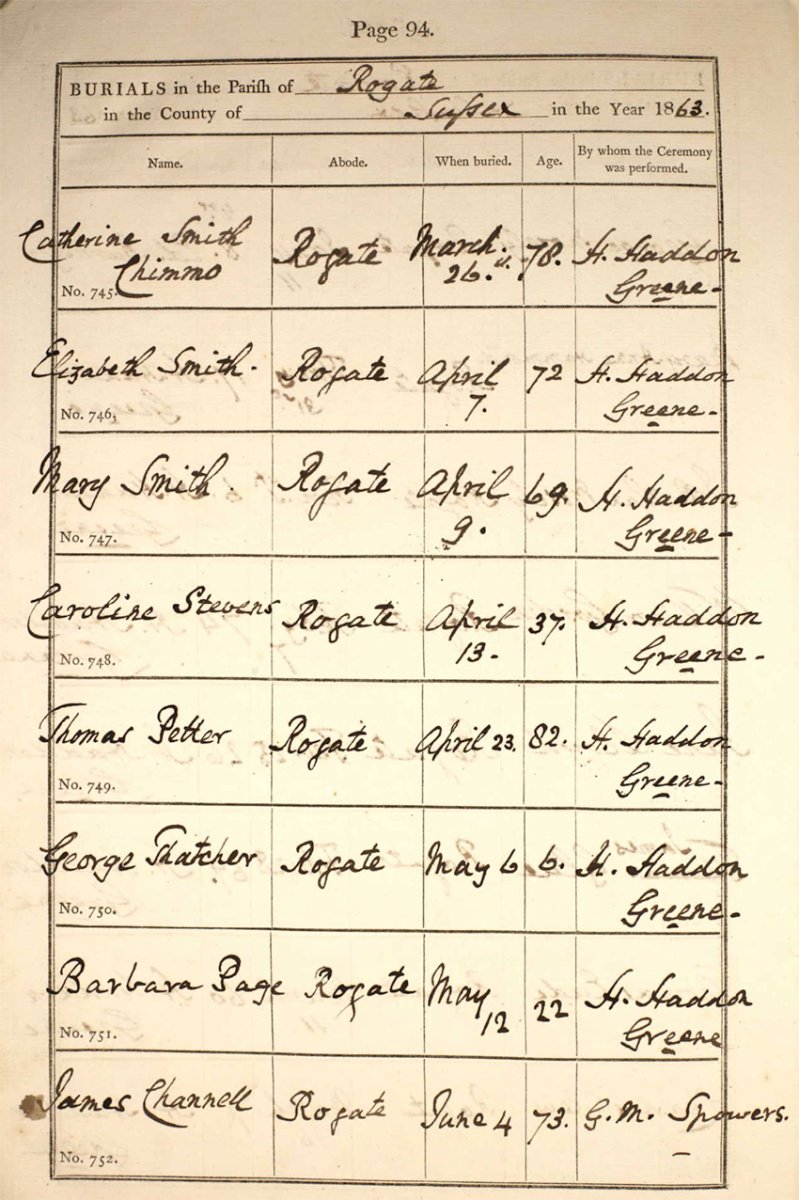 Page 94.
BURIALS in the Pariſh of Rogate
in the County of Suſsex in the Year 1863.
Name. Abode. When buried. Age. By whom the Ceremony
was performed.
Catherine Smith Rogate March. 78. H. Haddon
Chimmo 26. Greene-
No. 745.
Elizabeth Smith. Rogate April 72 H. Haddon
7. Greene-
No. 746.
Mary Smith. Rogate April 69. H. Haddon
9. Greene-
No. 747.
Caroline Stevens Rogate April 37. H. Haddon
13. Greene-
No. 748.
Thomas Petter Rogate April 23. 82. H. Haddon
Greene-
No. 749.
George Thatcher Rogate May 6 6. H. Haddon
Greene-
No. 750.
Barbara Page Rogate May 22 H. Haddon
12 Greene
No. 751.
James Channell Rogate June 4 73. G. M. Spowers.
No. 752.